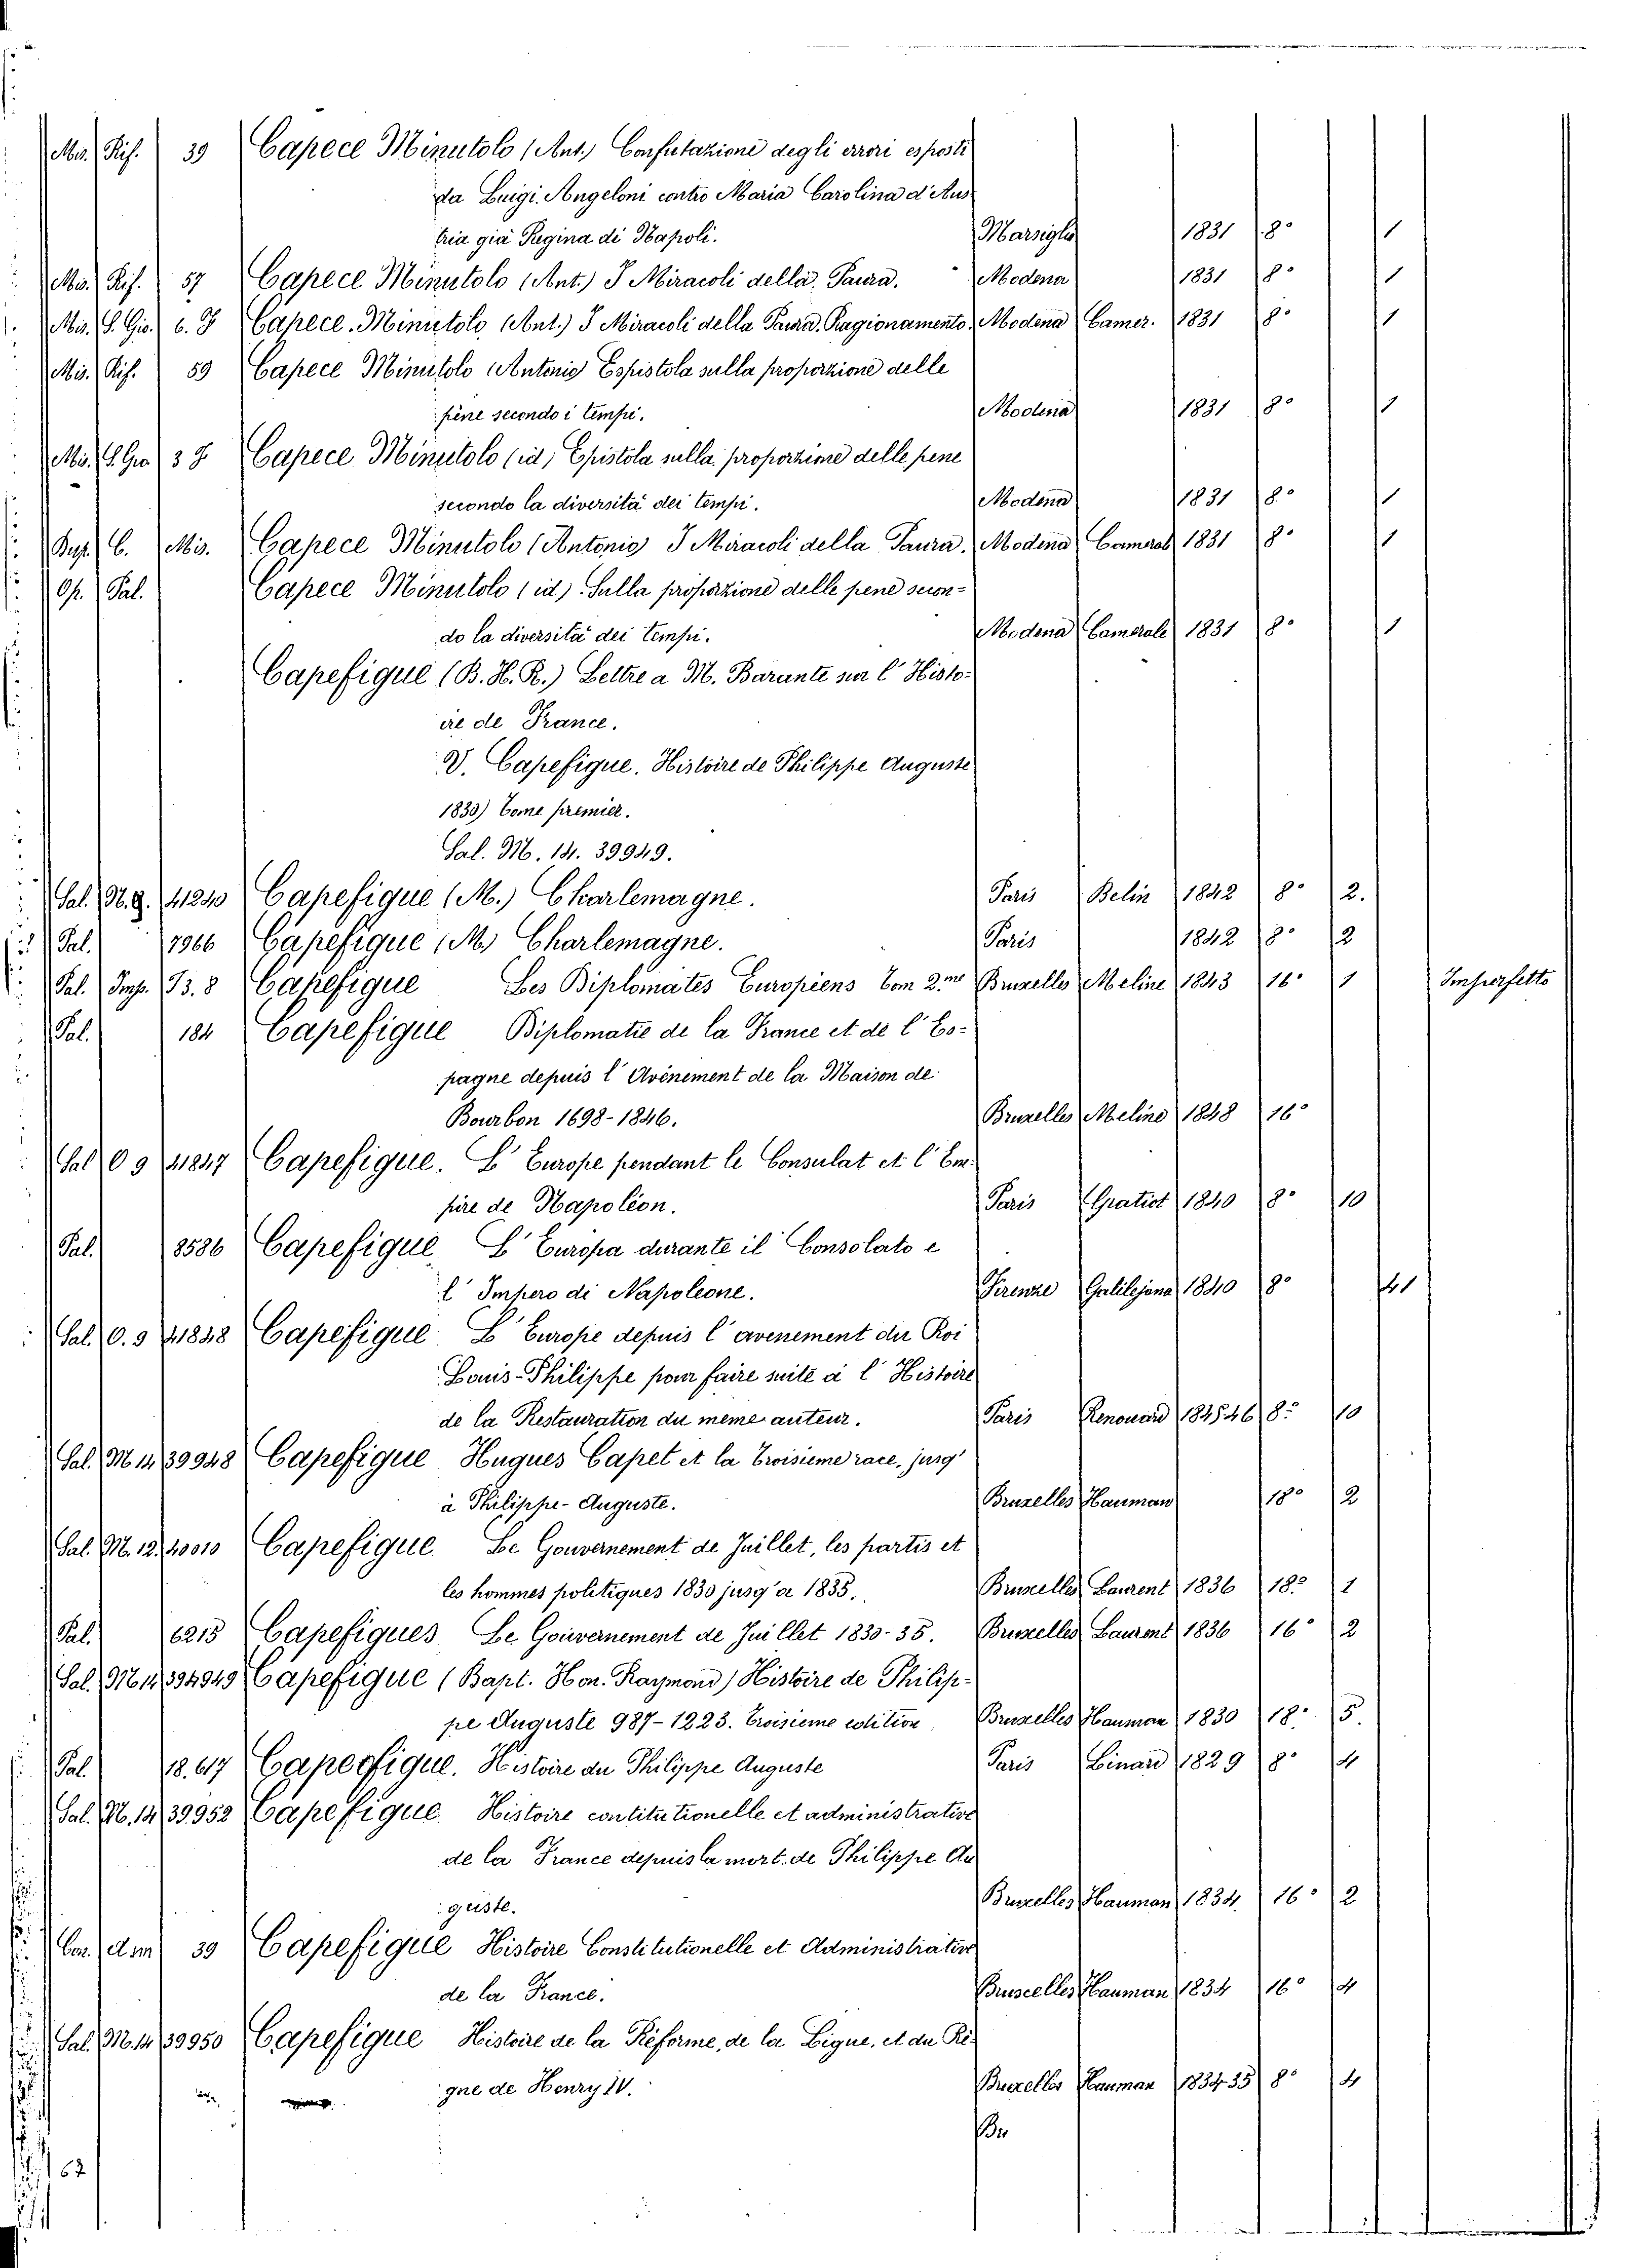 Mis. Rif. 39 Capece Minutolo (Ant.) Confutazione degli errori esposti
da Luigi Angeloni contro Maria Carolina d'Aus-
tria già Regina di Napoli. Marsiglia 1831 8° 1
Mis. Rif. 57 Capece Minutolo (Ant.) I Miracoli della Paura. Modena 1831 8° 1
Mis. S. Gio. 6. J Capece Minutolo (Ant.) I Miracoli della Paura. Ragionamento Modena Camer. 1831 8° 1
Mis. Rif. 59 Capece Minutolo (Antonio) Espistola sulla proporzione delle
pene secondo i tempi. Modena 1831 8° 1
Mis. S. Gio. 3 J Capece Minutolo (id) Epistola sulla proporzione delle pene
secondo la diversità dei tempi. Modena 1831 8° 1
C. Mis. Capece Minutolo (Antonio) I Miracoli della Paura. Modena Camerale 1831 8° 1
Op. Pal. Capece Minutolo (id) Sulla proporzione delle pene secon-
do la diversità dei tempi. Modena Camerale 1831 8° 1
Capefigue (B. H. R.) Lettre a M. Barante sur l'Histo-
ire de France.
V. Capefigue. Histoire de Philippe Auguste
1830) Tome premier.
Sal. M. 14. 39949.
Sal. N. 9. 41240 Capefigue (M.) Charlemagne. Paris Belin 1842 8° 2.
Pal. 7966 Capefigue (M.) Charlemagne. Paris 1842 8° 2
Pal. Imp. B. 8 Capefigue Les Diplomates Européens Tom 2.me Bruxelles Meline 1843 16° 1 Imperfetto
Pal. 184 Capefigue Diplomatie de la France et de l'Es-
pagne depuis l'Avénement de la Maison de
Bourbon 1698-1846. Bruxelles Meline 1848 16°
Sal O 9 41847 Capefigue. L'Europe pendant le Consulat et l'Em-
pire de Napoléon. Paris Gratiot 1840 8° 10
Pal. 8586 Capefigue L'Europa durante il Consolato e
l'Impero di Napoleone. Firenze Galilejana 1840 8° 41
Sal. O. 9 41848 Capefigue L'Europe depuis l'avenement du Roi
Louis-Philippe pour faire suite à l'Histoire
de la Restauration du meme auteur. Paris Renouard 184546 8° 10
Sal. M 14 39948 Capefigue Hugues Capet et la troisieme race, jusq'
à Philippe-Auguste. Bruxelles Hauman 18° 2
Sal. M. 12. 40010 Capefigue. Le Gouvernement de Juillet, les partis et
les hommes politiques 1830 jusq'a 1835. Bruxelles Laurent 1836 18° 1
Pal. 6215 Capefigues Le Gouvernement de Juillet 1830-35. Bruxelles Laurent 1836 16° 2
Sal. M 14 394949 Capefigue (Bapt. Hon. Raymond) Histoire de Philip-
pe Auguste 987-1223. troisieme edition Bruxelles Hauman 1830 18° 5.
Pal. 18.617 Capeofigue. Histoire du Philippe Auguste Paris Binard 1829 8° 4
Sal. M. 14 39.952 Capefigue. Histoire contitutionelle et administrative
de la France depuis la mort de Philippe Au
guste. Bruxelles Hauman 1834. 16° 2
Cor. Am 39 Capefigue Histoire Constitutionelle et Administrative
de la France. Bruscelles Hauman 1834 16° 4
Sal. M. 14 39950 Capefigue Histoire de la Réforme, de la Ligue, et du Rè-
gne de Henry IV. Bruxelles Hauman 1834-35 8° 4
Br
62